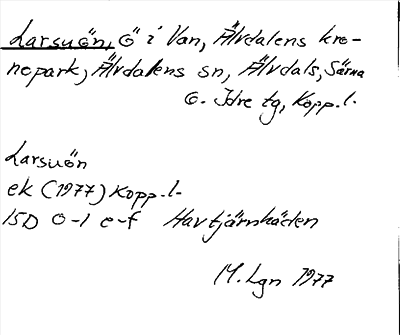 Larsuön, ö i Van, Älvdalens kro-
nepark, Älvdalens sn, Älvdals, Särna
o. Idre tg, Kopp. l.
Larsuön
ek (1977) Kopp. l.
15D 0-1 e-f Havtjärnhäden
M. Lgn 1977